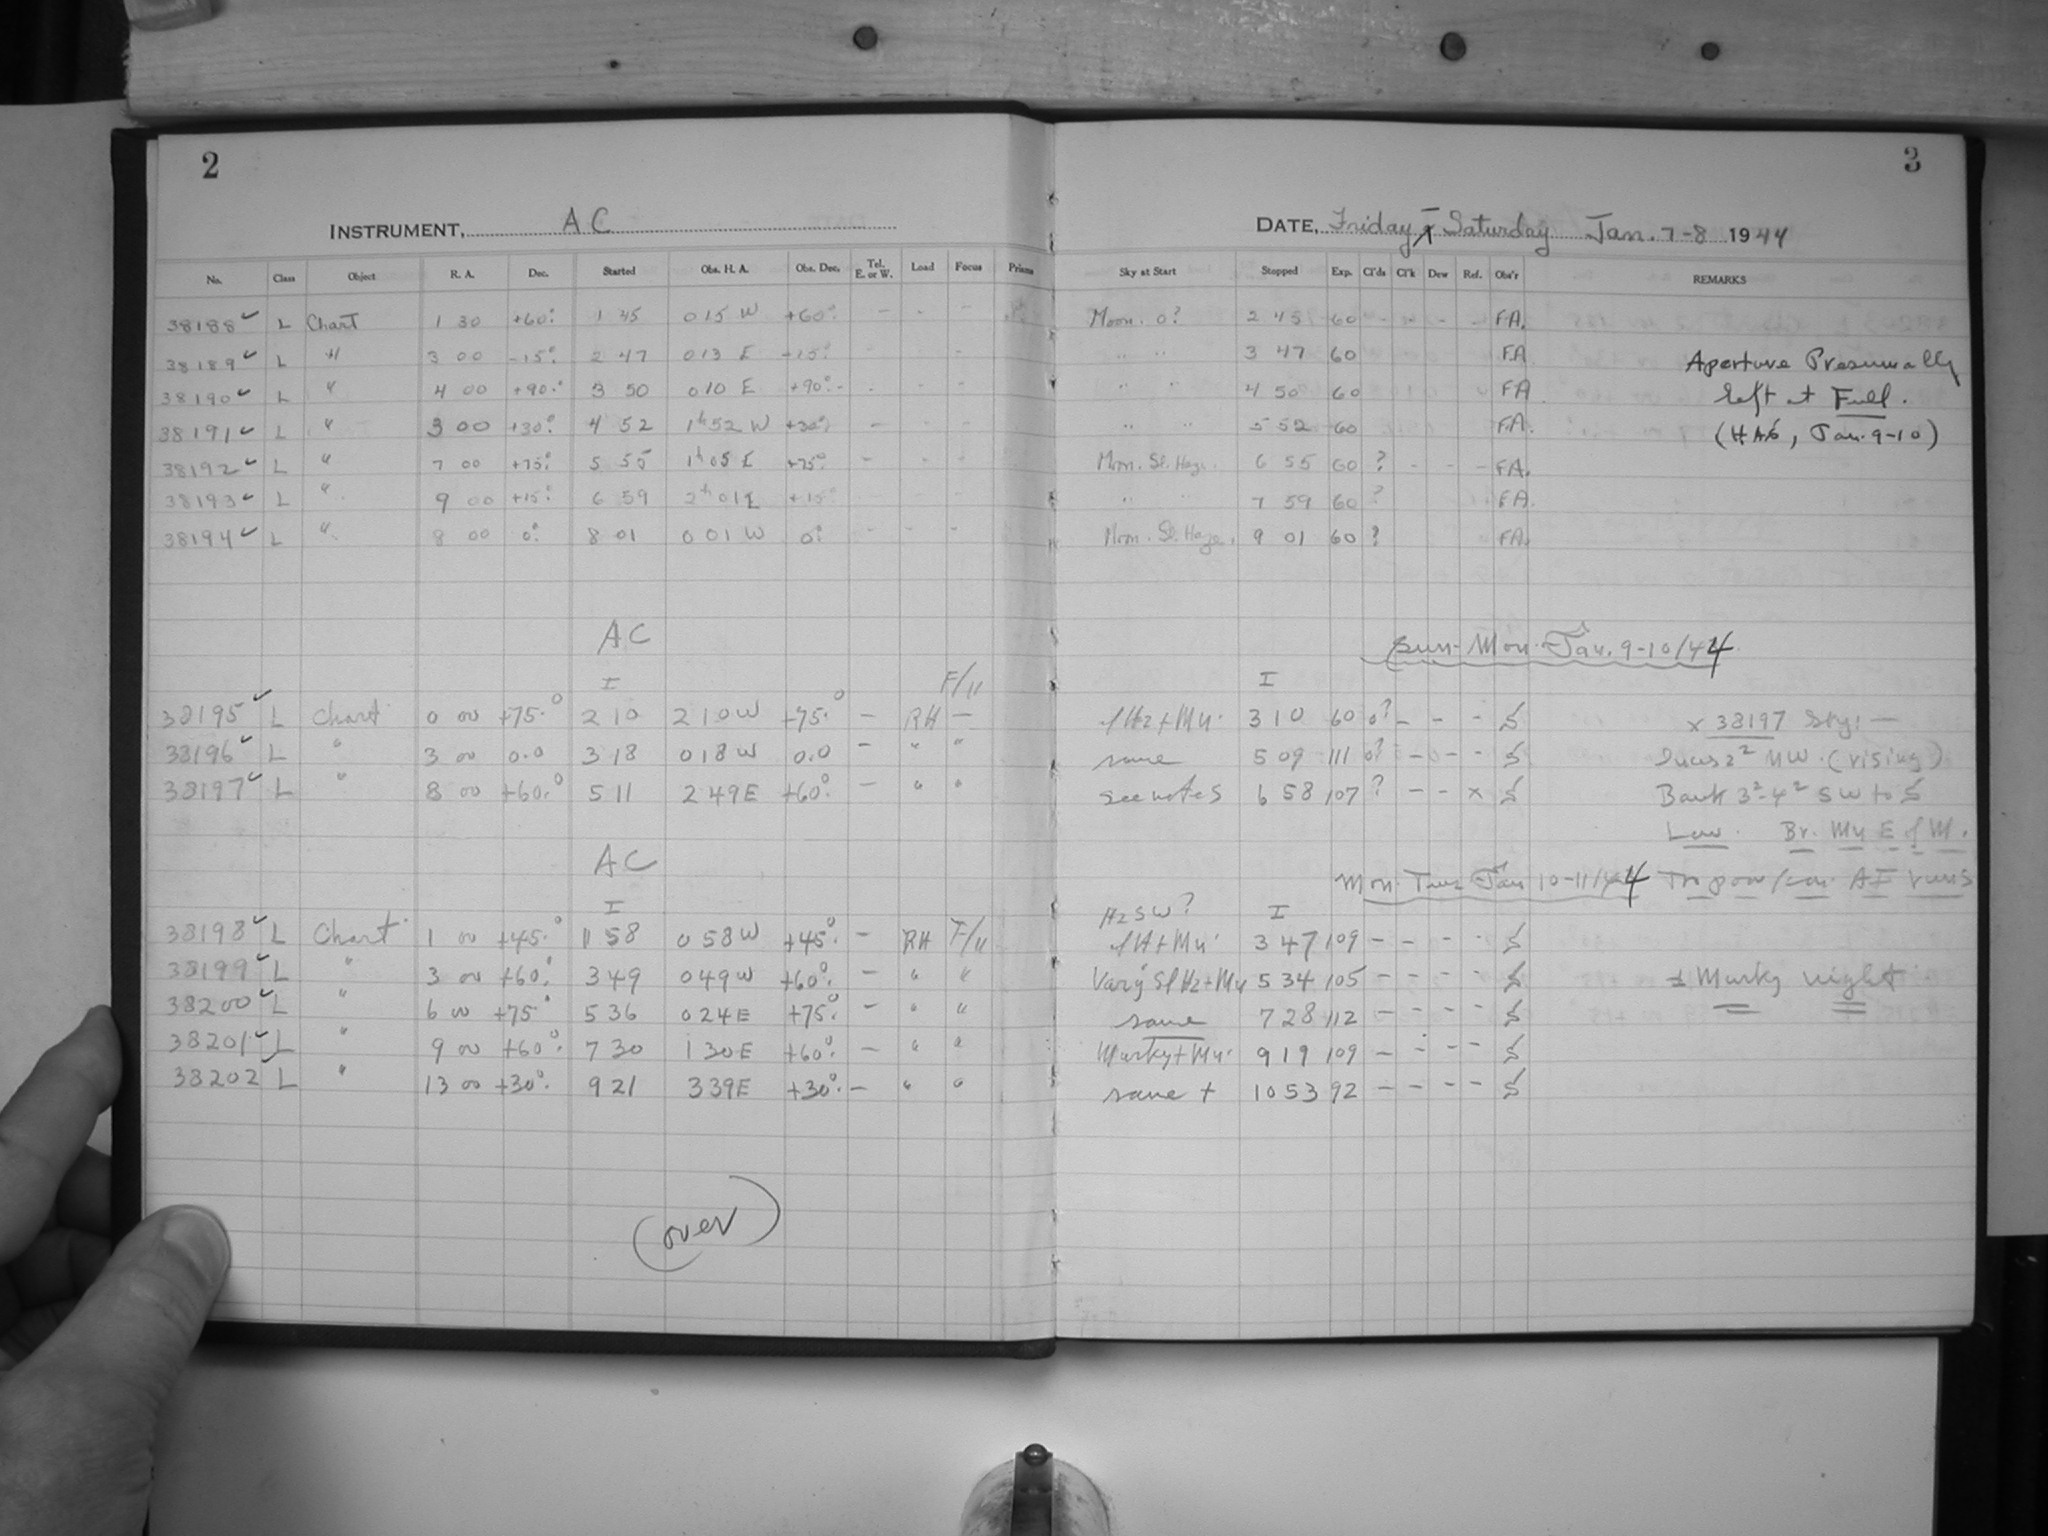 2
INSTRUMENT, A C
No. Class Object R. A. Dec. Started Obs. H. A. Obs. Dec. Tel. E. or W. Load Focus Prisms
38188 ✓ L Chart 1 30 +60° 1 45 0 15 W +60° - - -
38189 ✓ L " 3 00 -15° 2 47 0 13 E -15° - -
38190 ✓ L " 4 00 +90° 3 50 0 10 E +90° - - - -
38191 ✓ L " 3 00 +30° 4 52 1h 52 W +30° - - -
38192 ✓ L " 7 00 +75° 5 55 1h 05 E +75° - - -
38193 ✓ L " 9 00 +15° 6 59 2h 01 E +15° - - -
38194 ✓ L " 8 00 0° 8 01 0 01 W 0° - - -
AC
I F/11
38195 ✓ L Chart 0 00 +75.° 2 10 2 10 W +75.° - RH -
38196 ✓ L " 3 00 0.0 3 18 0 18 W 0.0 - " "
38197 ✓ L " 8 00 +60.° 5 11 2 49 E +60.° - " "
AC
I
38198 ✓ L Chart 1 00 +45.° 1 58 0 58 W +45.° - RH F/11
38199 ✓ L " 3 00 +60.° 3 49 0 49 W +60.° - " "
38200 ✓ L " 6 00 +75° 5 36 0 24 E +75.° - " "
38201 ✓ L " 9 00 +60.° 7 30 1 30 E +60.° - " "
38202 L " 13 00 +30.° 9 21 3 39 E +30.° - " "
(over)
3
DATE, Friday - Saturday Jan. 7-8 1944
Sky at Start Stopped Exp. Cl'ds Cl'k Dew Ref. Obs'r REMARKS
Moon. 0? 2 45 60 - - - - FA.
" " 3 47 60 FA
Aperture Presumably
" " 4 50 60 FA
left at Full.
" " 5 52 60 FA.
(HAS, Jan. 9-10)
Moon. Sl. Haze. 6 55 60 ? - - - FA.
" " 7 59 60 ? FA.
Moon. Sl. Haze. 9 01 60 ? FA.
Sun-Mon. Jan. 9-10/44
I
sl Hz + Mn. 3 10 60 0? - - - S x 38197 Sky: -
same 5 09 111 0? - - - S NW. (rising)
see notes 6 58 107 ? - - x S Bank 3²-4² SW to S
Low. Br. Mn E of M.
Mon. Tues Jan 10-11/44
Hz SW? I
sl H + Mn. 3 47 109 - - - - S
Vary'g Sl Hz + Mn 5 34 105 - - - - S ± Murky night
same 7 28 112 - - - - S
Murky + Mn. 9 19 109 - - - - S
same + 10 53 92 - - - - S